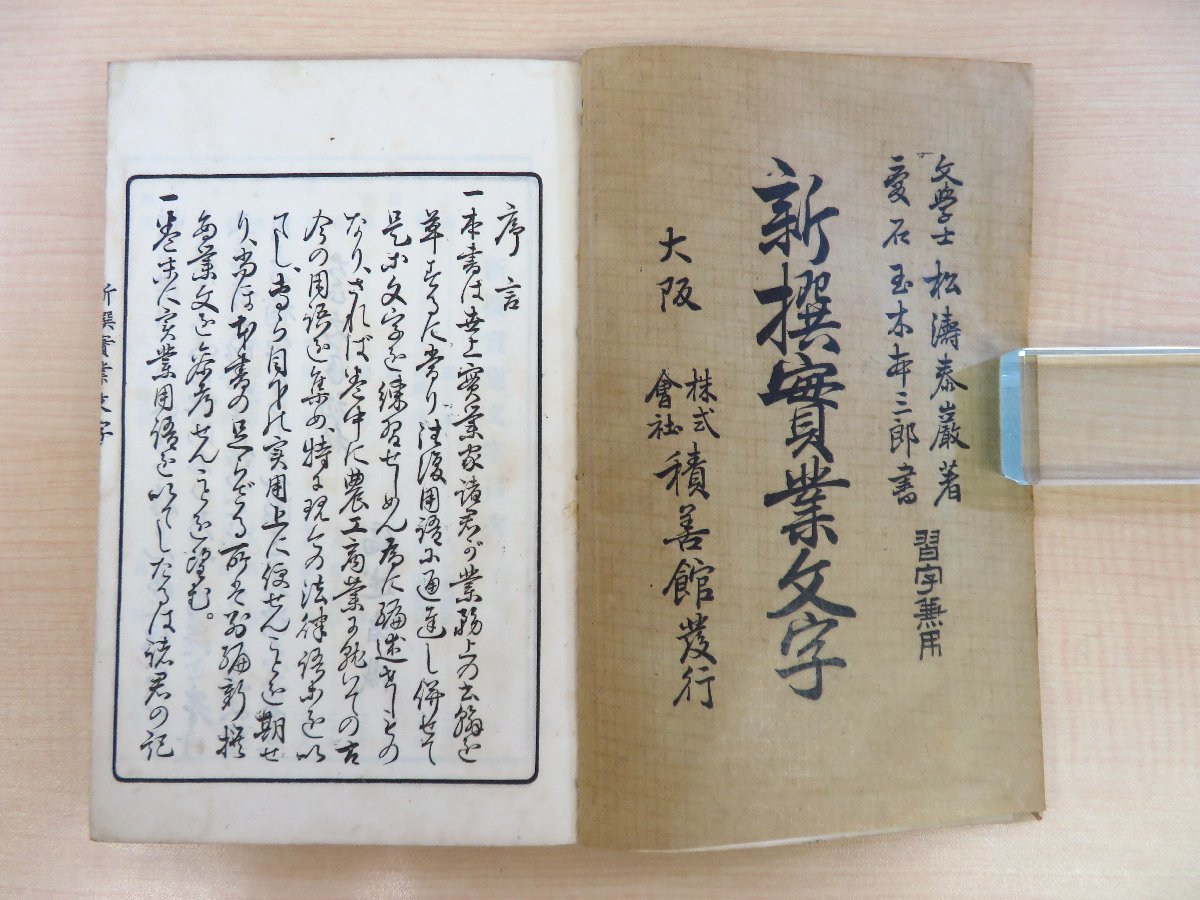 文学士 松濤泰巖著
愛石 玉木本三郎書
習字兼用
新撰實業文字
大阪 株式會社 積善館發行
序言
一本書は世上實業家諸君が業務上の書翰を
草するに当り往復用語に通達し併せて
是等文字を練習せしめん為に編述せしもの
なり、されば巻中に農工商業に就いての古
今の用語を集め、特に現今の法律語等を以
てし、専ら目下の実用上に便せんことを期せ
り、尚ほ本書の足らざる所は別編新撰
商業文を参考せんことを望む。
一巻末に実業用語を以てしたるは諸君の記
新撰實業文字